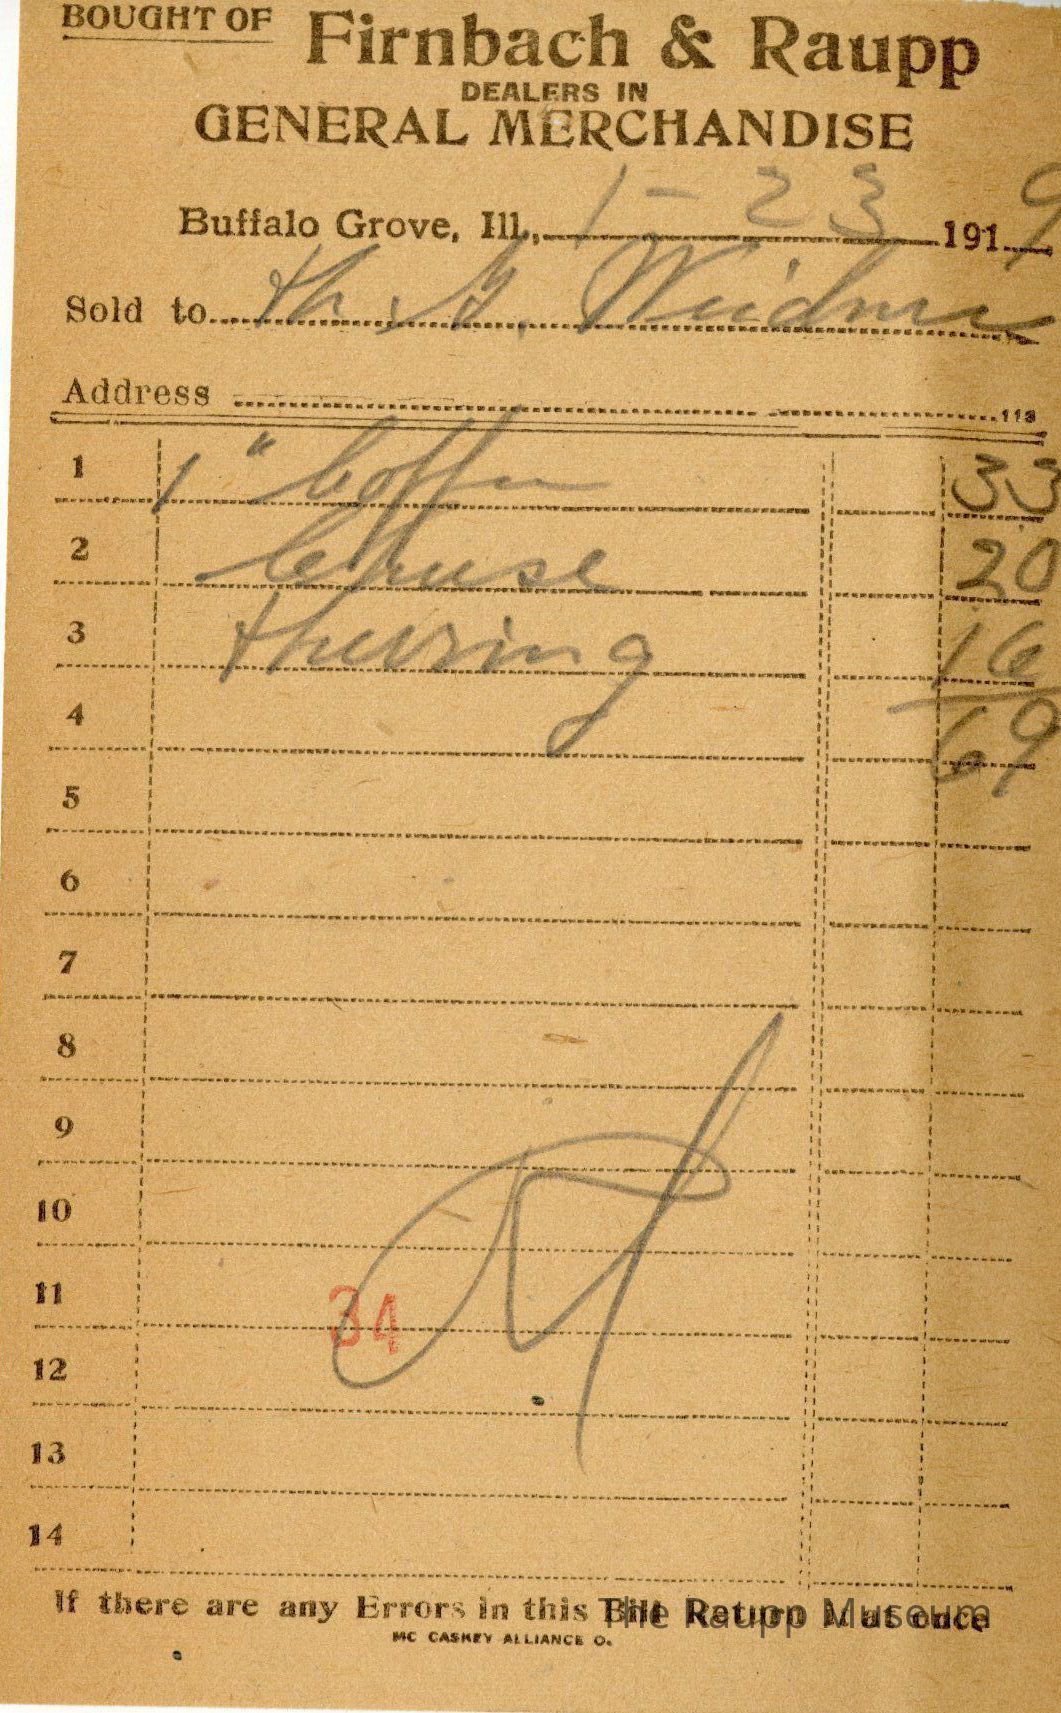 BOUGHT OF Firnbach & Raupp
DEALERS IN
GENERAL MERCHANDISE
Buffalo Grove, Ill., 1-23 1919
Sold to
Address 113
1 1 " Coffee 33
2 Cheese 20
3 Herring 16
4 69
5
6
7
8
9
10
11 34
12
13
14
If there are any Errors in this Bill Return it at once
The Raupp Museum
MC CASKEY ALLIANCE O.